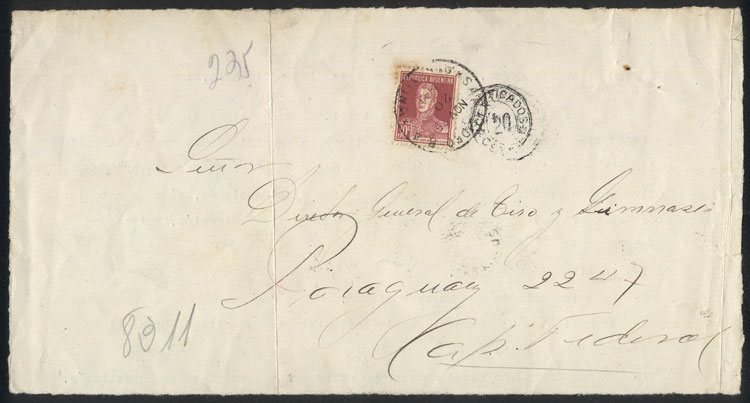 225
REPUBLICA ARGENTINA
Señor
Director General de Tiro y Gimnasia
Paraguay 2247
Cap. Federal
8311